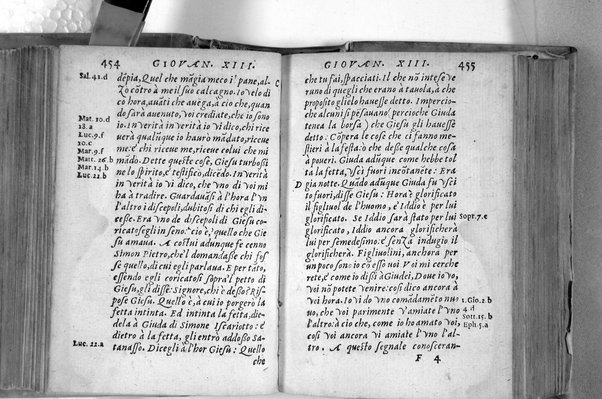 454 GIOVAN. XIII.
Sal. 41.d
dẽpia, Quel che mãgia meco i' pane, al-
zo cõtro à me il suo calcagno. Io ve lo di
co hora, auãti che auẽga, à cio che, quan
do sarà auenuto, voi crediate, che io sono
Mat. 10.d
18.a
Luc. 9.f
10.c
Mar. 9.f
Matt. 26.b
Mar. 14.b
Luc. 22.b
io. In verità in verità io vi dico, chi rice
uerà qualũque io haurò mãdato, riceue
me: e chi riceue me, riceue colui che mi
mãdo. Dette queste cose, Giesu turbossi
ne lo spirito, e testificò, dicẽdo. In verità
in verità io vi dico, che vno di voi mi
ha à tradire. Guardauãsi à l'hora l'vn
l'altro i discepoli, dubitosi di chi egli di-
cesse. Era vno de discepoli di Giesu co-
ricato segli in seno: cio è, quello che Gie
su amaua. A costui adunque fe cenno
Simon Pietro, che'l domandasse chi fos
se quello, di cui egli parlaua. E per tãto,
essendo egli coricatosi sopra'l petto di
Giesu, gli disse: Signore, chi è desso? Ris-
pose Giesu. Quello è, à cui io porgerò la
fetta intinta. Ed intinta la fetta, die-
dela à Giuda di Simone Iscariotto: e
dietro à la fetta, gli entrò addosso Sa-
Luc. 22.a
tanasso. Dicegli à l'hor Giesu: Quello
che
GIOVAN. XIII. 455
che tu fai, spacciati. Il che nõ intese ve
runo di quegli che erano à tauola, à che
proposito glielo hauesse detto. Impercio-
che alcuni si pẽsauano, percioche Giuda
tenea la borsa, che Giesu gli hauesse
detto. Cõpera le cose che ci fanno me-
stieri à la festa: ò che desse qualche cosa
à poueri. Giuda adũque come hebbe tol
ta la fetta, vsci fuori incõtanẽte: Era
D
gia notte. Quãdo adũque Giuda fu vsci
to fuori, disse Giesu: Hora è glorificato
il figliuol de l'huomo, e' Iddio è per lui
glorificato. Se Iddio sarà stato per lui
Sopr. 7.e
glorificato, Iddio ancora glorificherà
lui per se medesimo: e senza indugio il
glorificherà. Figliuolini, anchora per
un poco sono io cõ esso voi. Voi mi cerche
rete, e come io dissi à Giudei, Doue io vo,
voi nõ potete venire: così dico ancora à
voi hora. Io vi do vno comãdamẽto nuo
1. Gio. 2.b
4.d
Sott. 15.b
Eph. 5.a
uo, che voi parimente v'amiate l'vno
l'altro: à cio che, come io ho amato voi,
così voi ancora vi amiate l'vno l'al-
tro. A questo segnale conosceran-
F 4